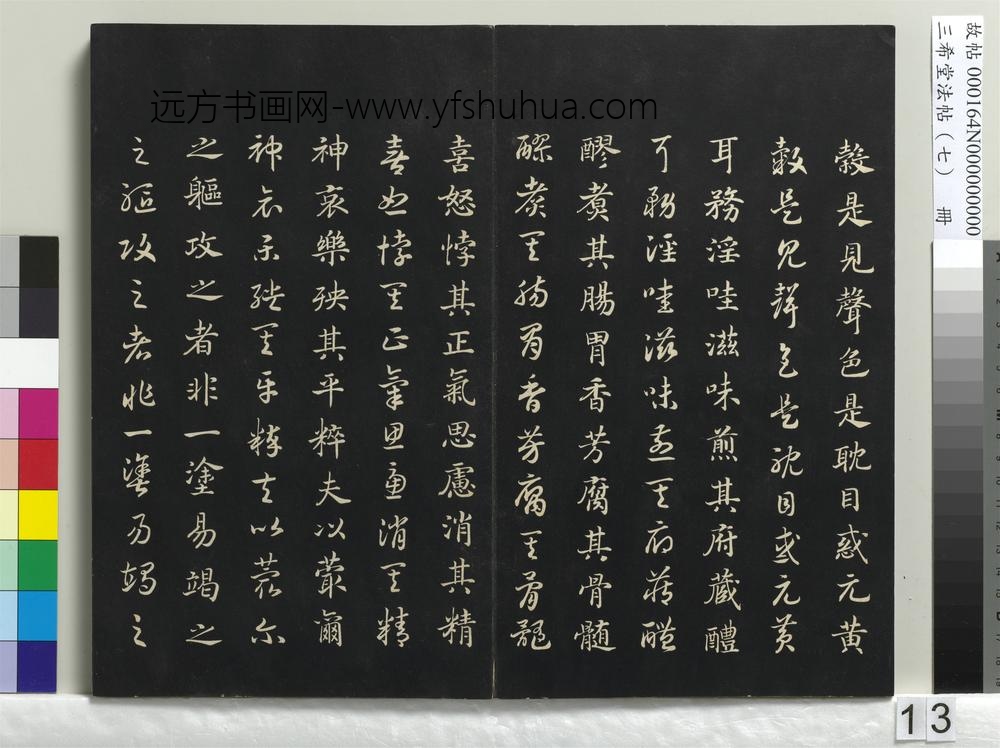 穀是見聲色是耽目惑元黄
穀是見聲色是耽目惑元黄
耳務淫哇滋味煎其府藏醴
耳務淫哇滋味煎其府藏醴
醪煮其腸胃香芳腐其骨髓
醪煮其腸胃香芳腐其骨髓
喜怒悖其正氣思慮消其精
喜怒悖其正氣思慮消其精
神哀樂殃其平粹夫以蕞爾
神哀樂殃其平粹夫以蕞爾
之軀攻之者非一塗易竭之
之軀攻之者非一塗易竭之
远方书画网-www.yfshuhua.com
故帖 000164N000000000
三希堂法帖(七) 冊
13